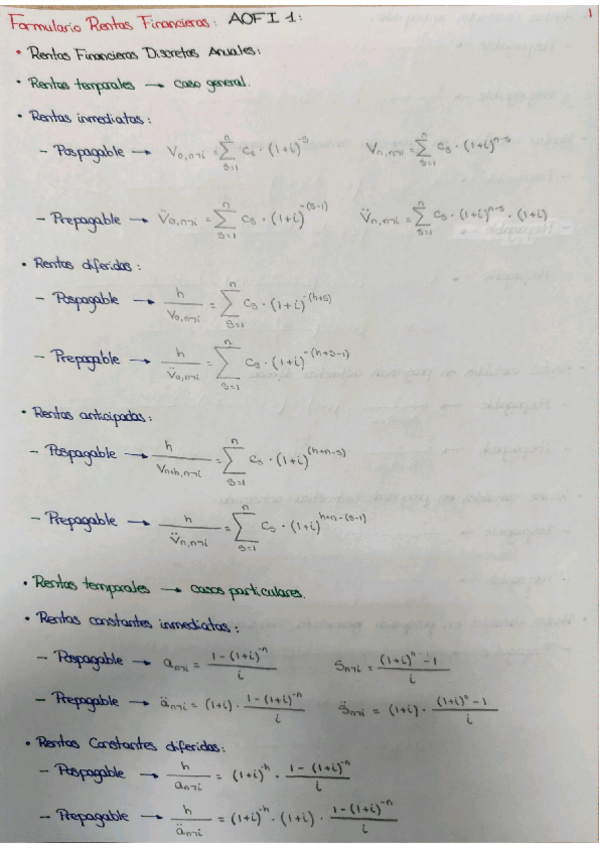 Formulario Rentas Financieras: AOFI 1: 1
• Rentas Financieras Discretas Anuales:
• Rentas temporales → caso general.
• Rentas inmediatas:
– Pospagable → V₀,n¬i = ∑ₛ₌₁ⁿ Cₛ · (1+i)^-s Vₙ,n¬i = ∑ₛ₌₁ⁿ Cₛ · (1+i)^n-s
– Prepagable → V̈₀,n¬i = ∑ₛ₌₁ⁿ Cₛ · (1+i)^-(s-1) V̈ₙ,n¬i = ∑ₛ₌₁ⁿ Cₛ · (1+i)^n-s · (1+i)
• Rentas diferidas:
– Pospagable → h / V₀,n¬i = ∑ₛ₌₁ⁿ Cₛ · (1+i)^-(h+s)
– Prepagable → h / V̈₀,n¬i = ∑ₛ₌₁ⁿ Cₛ · (1+i)^-(h+s-1)
• Rentas anticipadas:
– Pospagable → h / Vₙ₊ₕ,n¬i = ∑ₛ₌₁ⁿ Cₛ · (1+i)^(h+n-s)
– Prepagable → h / V̈ₙ,n¬i = ∑ₛ₌₁ⁿ Cₛ · (1+i)^h+n-(s-1)
• Rentas temporales → casos particulares.
• Rentas constantes inmediatas:
– Pospagable → a n¬i = 1-(1+i)^-n / i S n¬i = (1+i)^n -1 / i
– Prepagable → ä n¬i = (1+i) · 1-(1+i)^-n / i S̈ n¬i = (1+i) · (1+i)^n -1 / i
• Rentas Constantes diferidas:
– Pospagable → h / a n¬i = (1+i)^-h · 1-(1+i)^-n / i
– Prepagable → h / ä n¬i = (1+i)^-h · (1+i) · 1-(1+i)^-n / i